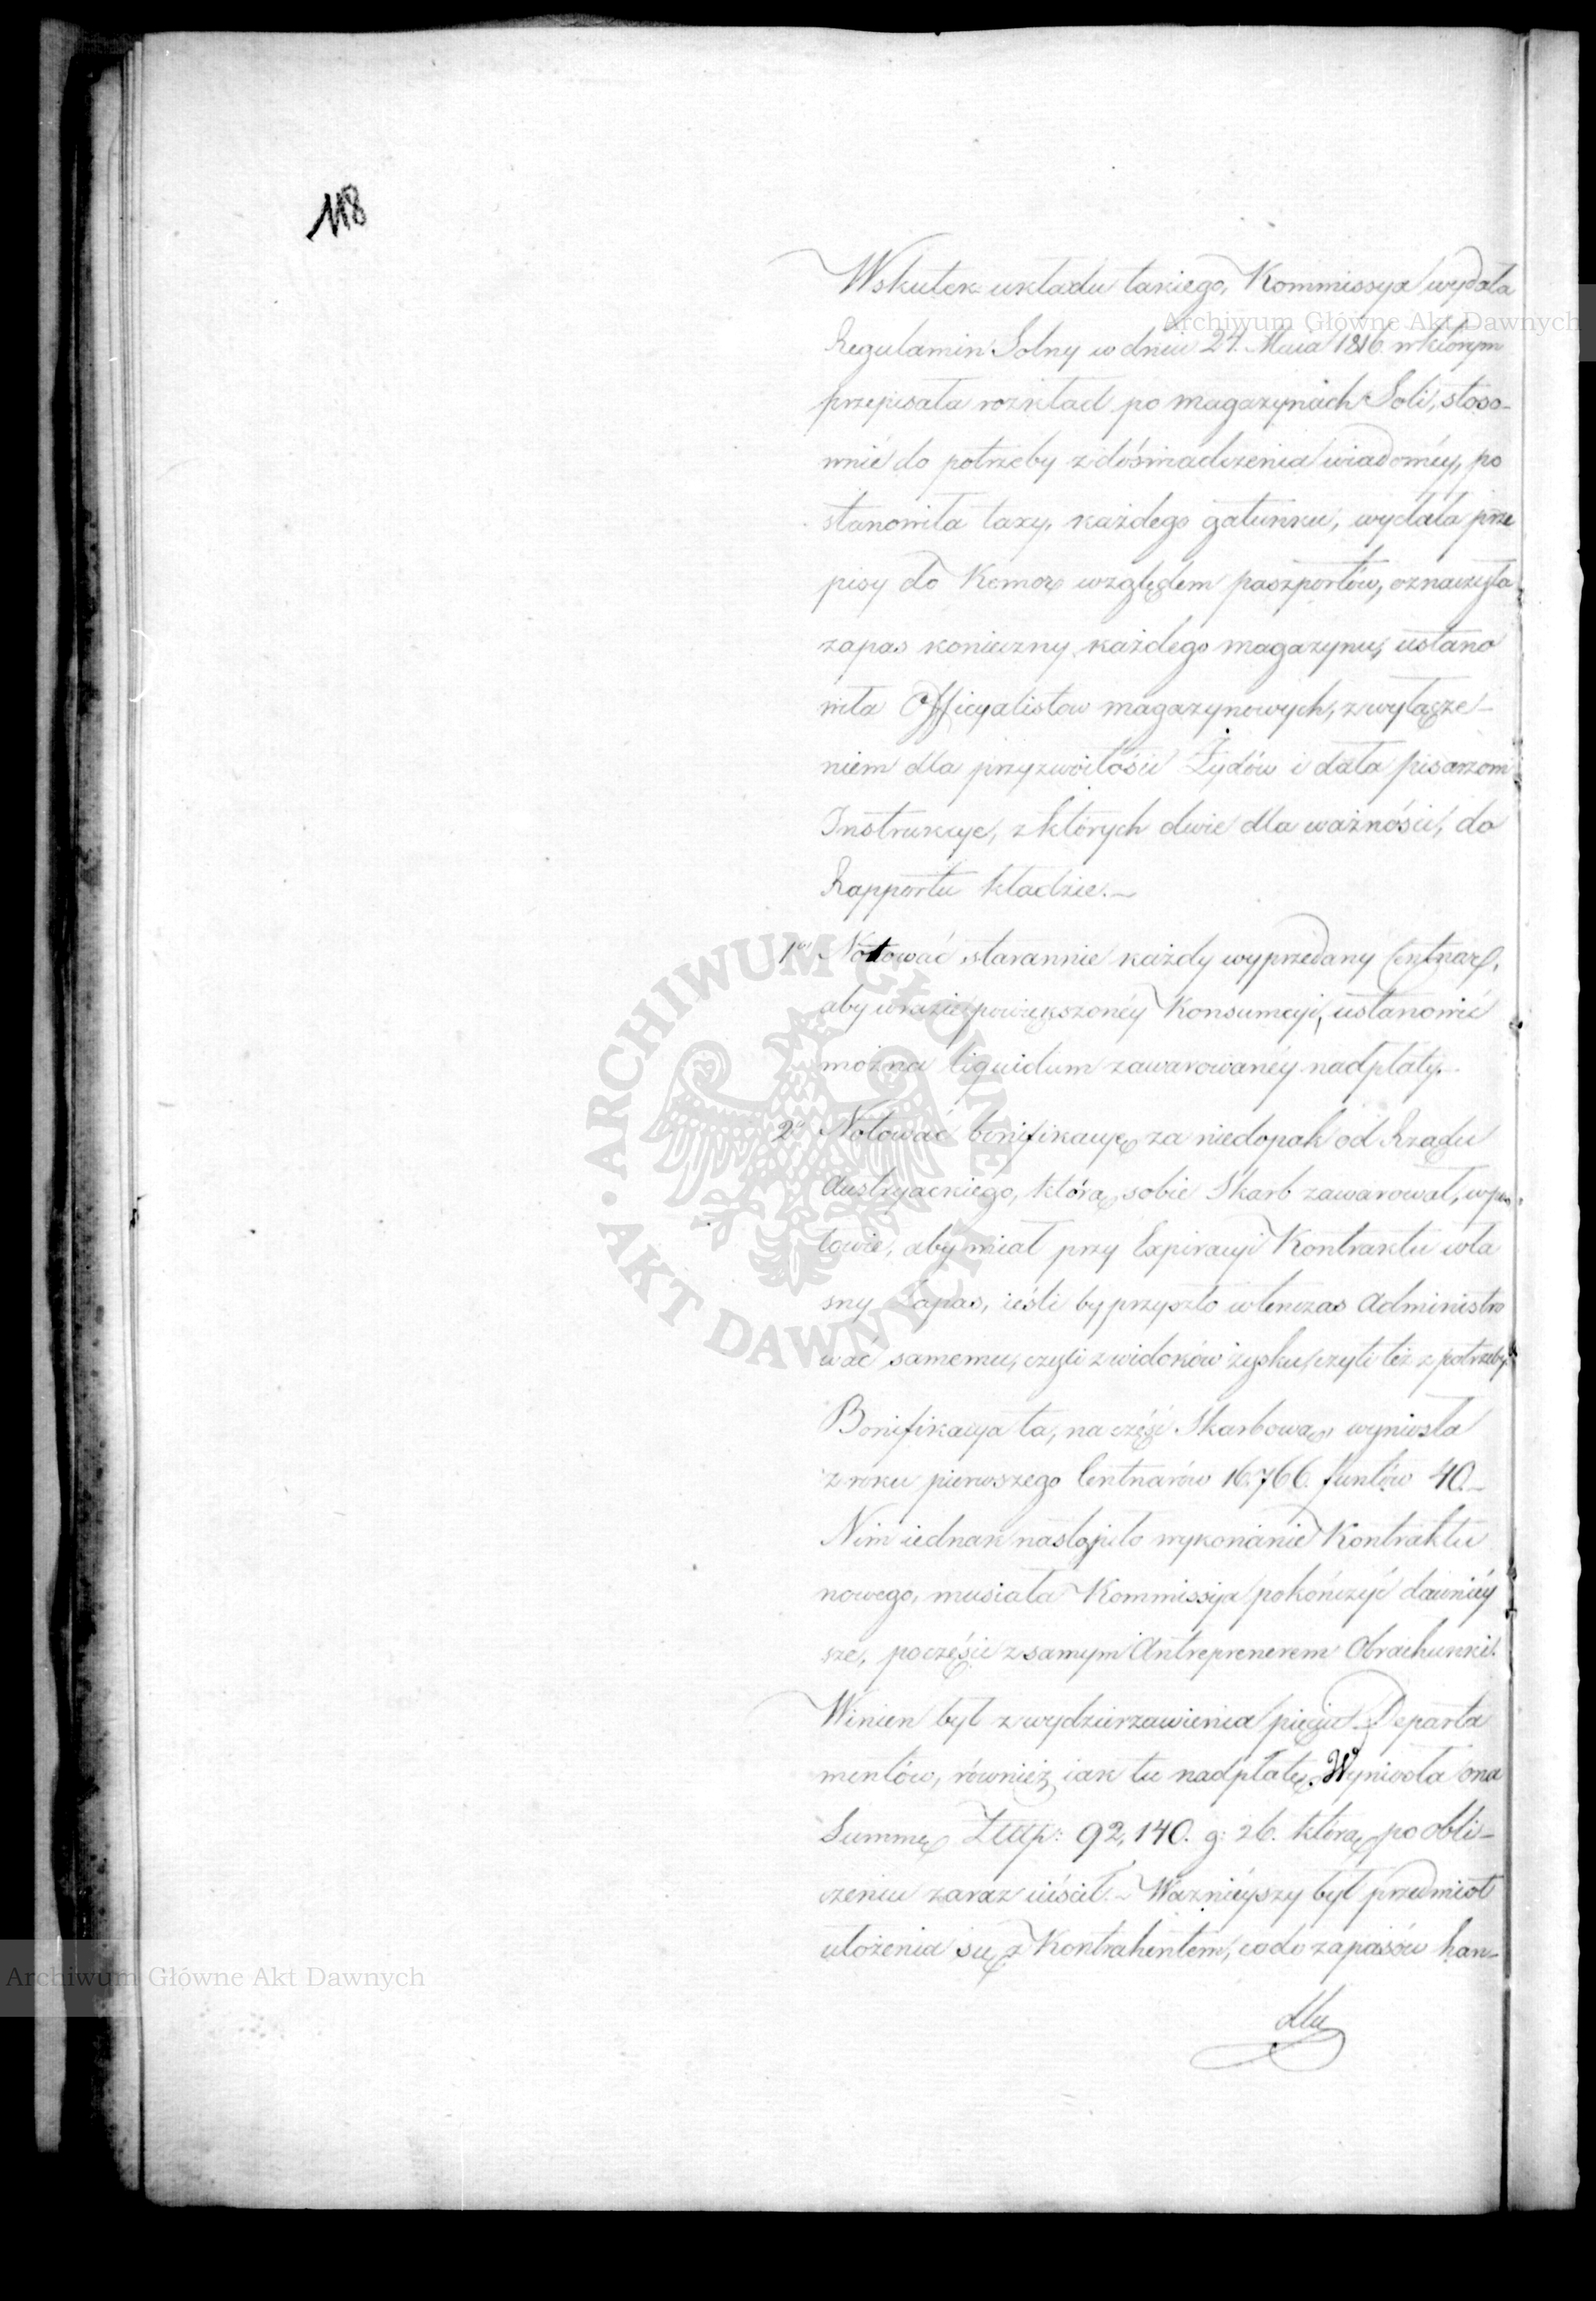 118
Wskutek układu takiego, Kommissya wydała
Regulamin Solny w dniu 24. Maia 1816. w którym
przepisała rozkład po magazynach Soli, stoso-
wnie do potrzeby z doświadczenia wiadoméy, po
stanowiła taxy, każdego gatunku, wydała prze
pisy do Komor względem paszportów, oznaczyła
zapas konieczny każdego magazynu, ustano
wiła Officyalistow magazynowych, z wyłącze-
niem dla przyzwoitości Żydów i dała pisarzom
Instrukcye, z których dwie dla ważności, do
Rapportu kładzie.—
1o Notować starannie każdy wyprzedany Centnar,
aby w razie powiększonéy Konsumcyi, ustanowić
można liquidum zawarowanéy nadpłaty.—
2o Notować bonifikacyę za niedopak od Rządu
Austryackiego, którą sobie Skarb zawarował, w po
łowie, aby miał przy Expiracyi Kontraktu wła
sny Zapas, ieśli by przyszło wtenczas Administro
wać samemu, czyli z widoków zysku, czyli też z potrzeby
Bonifikacya ta, na część Skarbową, wyniosła
z roku pierwszego Centnarów 16.766. funtów 40.—
Nim iednak nastąpiło wykonanie Kontraktu
nowego, musiała Kommissya pokończyć dawniéy
sze, po części z samym Antreprenerem Obrachunki.
Winien był z wydzierzawienia pięciu Departa
mentów, również iak tu nadpłatę. Wyniosła ona
Summę Złłp: 92,140. g: 26. którą po obli-
czeniu zaraz uiścił.— Ważniéyszy był przedmiot
ułożenia się z Kontrahentem, co do zapasów han-
dlu
Archiwum Główne Akt Dawnych
Archiwum Główne Akt Dawnych
ARCHIWUM GŁÓWNE · AKT DAWNYCH ·